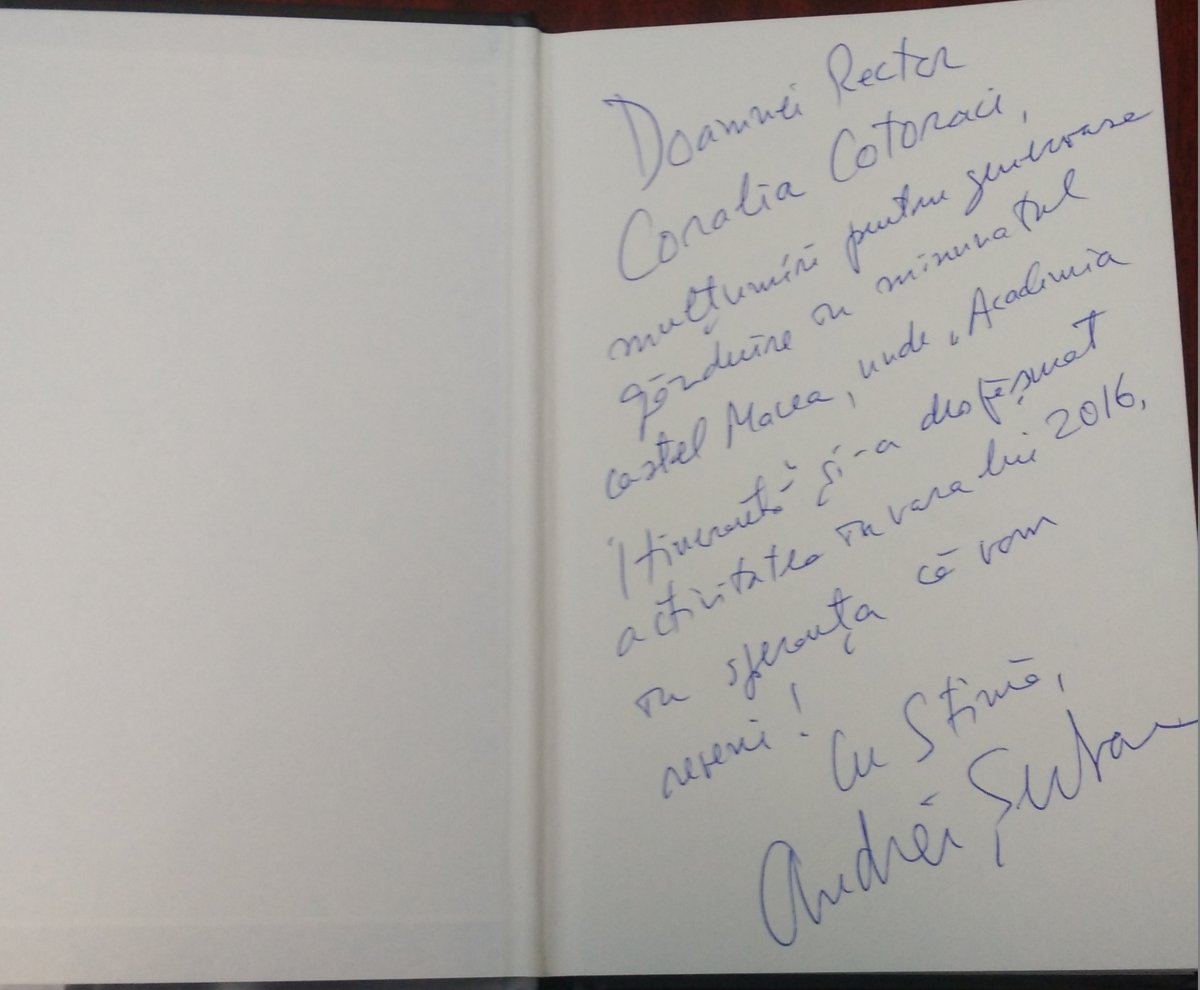 Doamnei Rector
Coralia Cotoraci,
mulțumiri pentru generoase
găzduire în minunatul
castel Macea, unde „Academia
Itinerantă" și-a desfășurat
activitatea în vara lui 2016,
în speranța că vom
reveni!
Cu Stimă,
Andrei Șerban